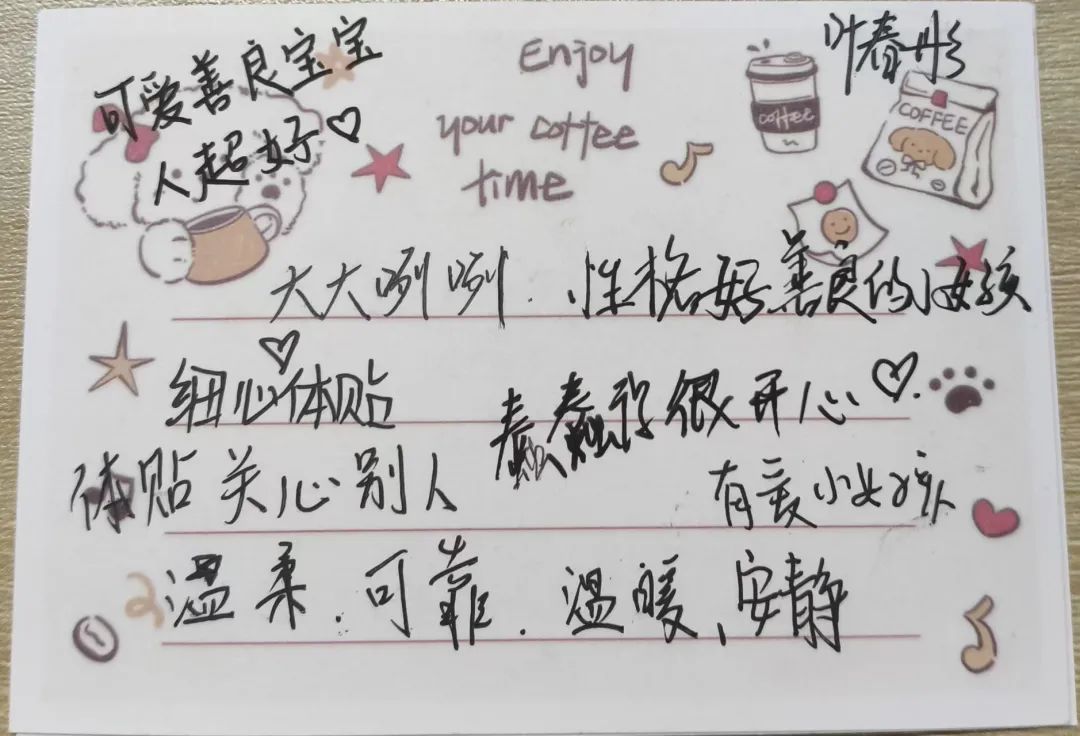 可爱善良宝宝
人超好♡
Enjoy
your coffee
time
叶春彤
coffee
COFFEE
大大咧咧.
、性格好善良的小女孩
细心体贴♡
蠢蠢很开心♡.
体贴关心别人
有爱小女孩
温柔.可靠.温暖、安静